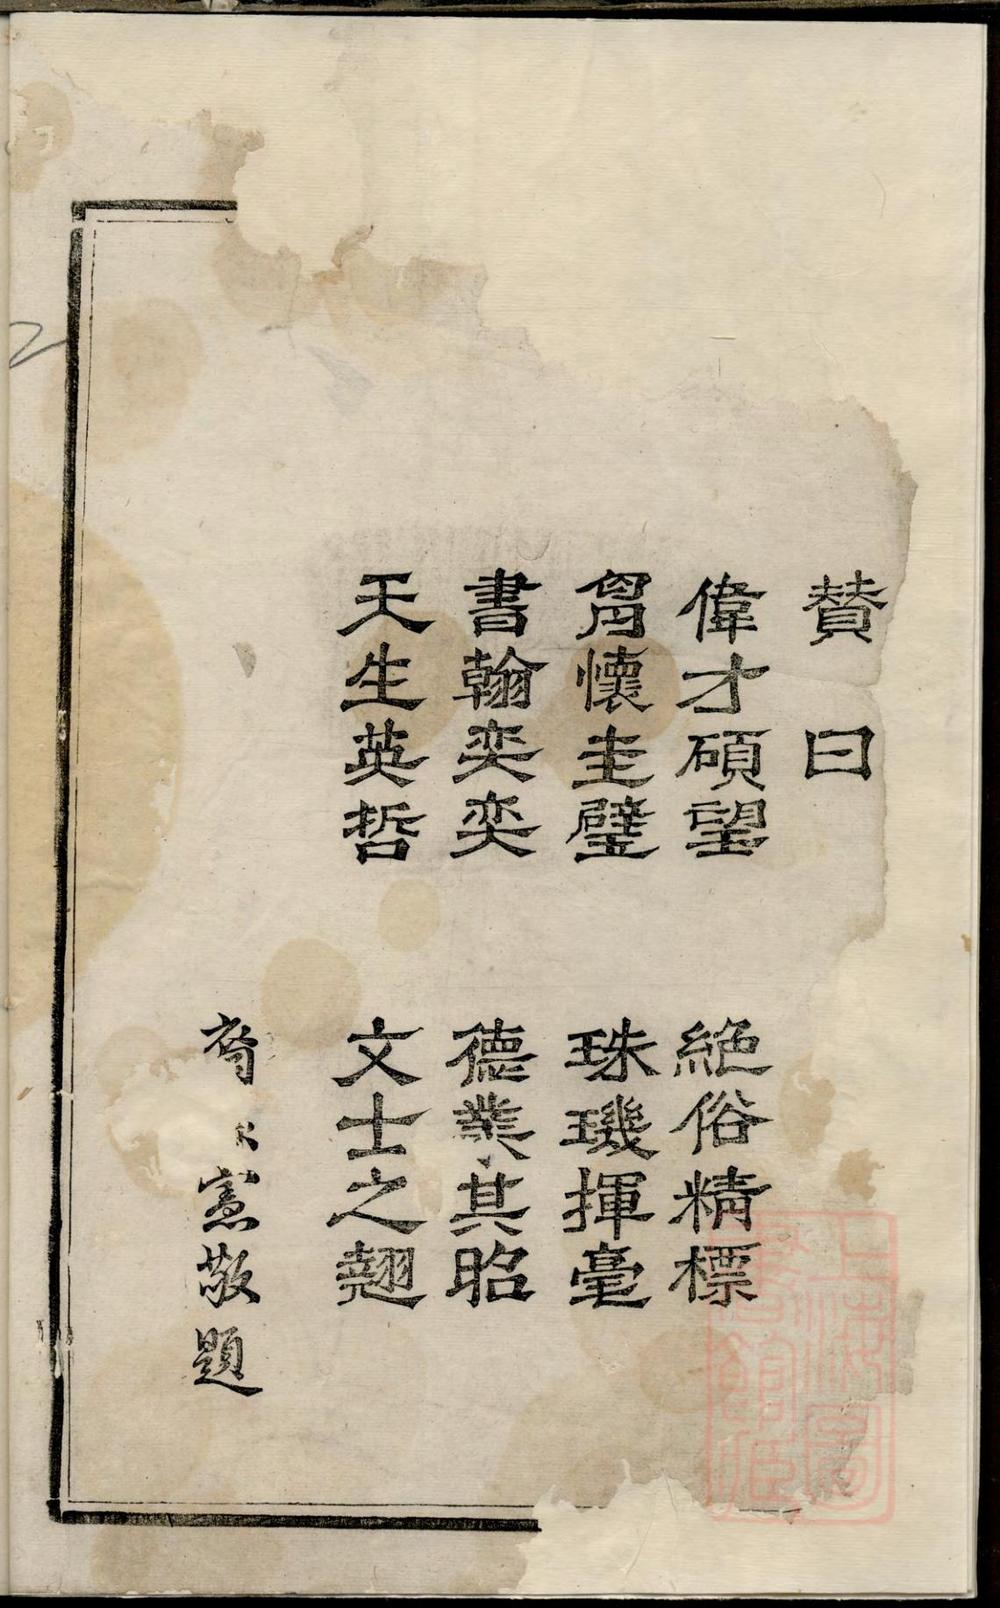 贊曰
偉才碩望 絕俗精標
胷懷圭璧 珠璣揮毫
書翰奕奕 德業其昭
天生英哲 文士之翹
憲敬題
上海圖書館藏